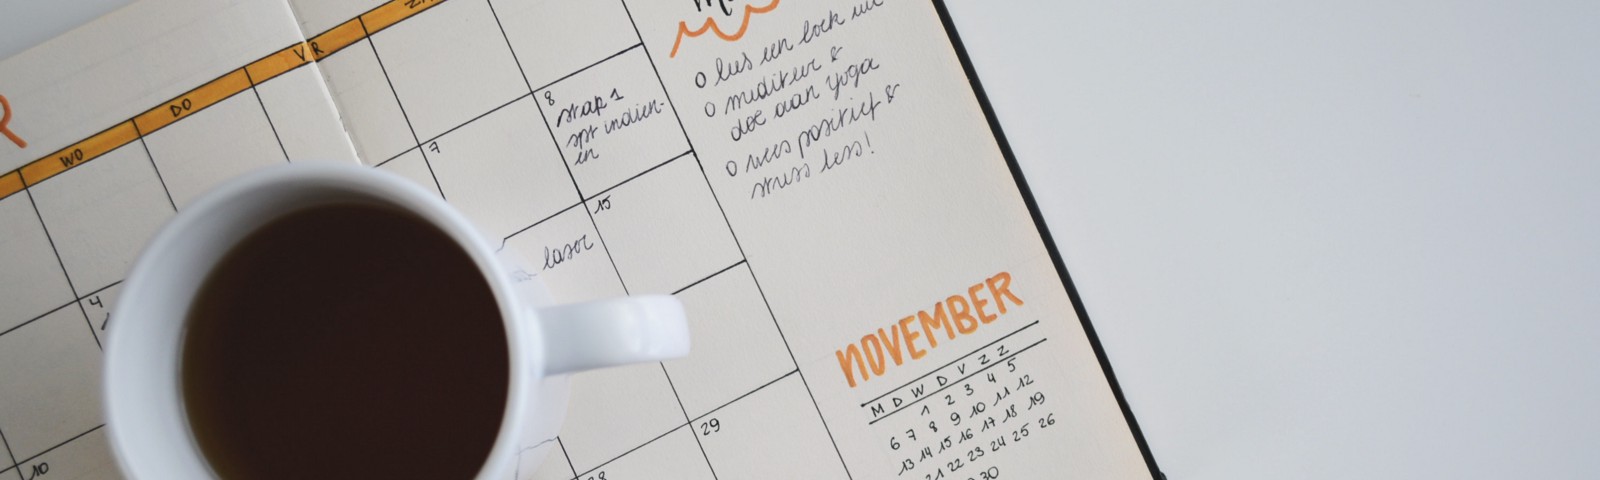 WO DO VR ZA
4
10
7
8
stap 1
spt indien-
en
15
laser
29
28
o lees een boek uit
o mediteer &
doe aan yoga
o wees positief &
stress less!
NOVEMBER
M D W D V Z Z
1 2 3 4 5
6 7 8 9 10 11 12
13 14 15 16 17 18 19
21 22 23 24 25 26
30